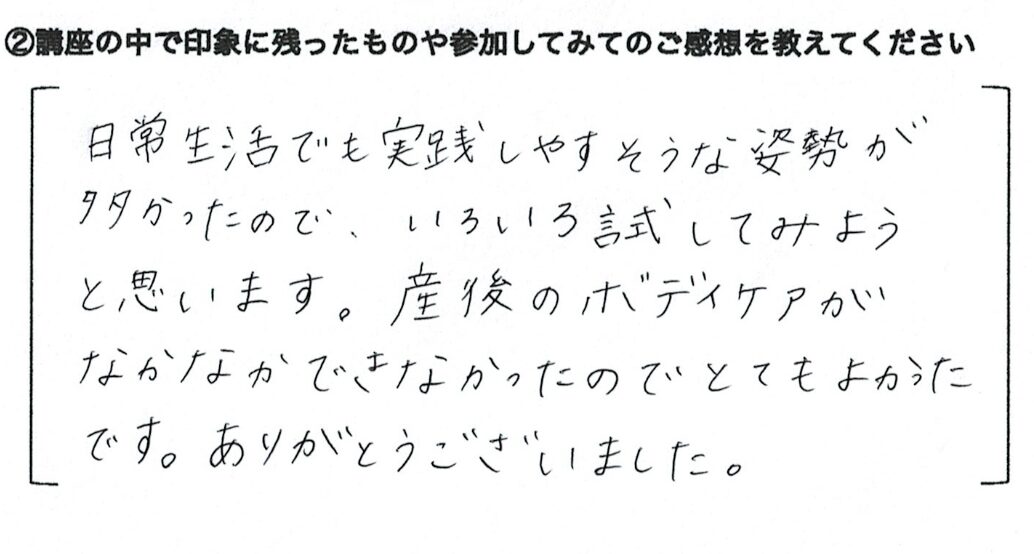 ②講座の中で印象に残ったものや参加してみてのご感想を教えてください
日常生活でも実践しやすそうな姿勢が
多かったので、いろいろ試してみよう
と思います。産後のボディケアが
なかなかできなかったのでとてもよかった
です。ありがとうございました。